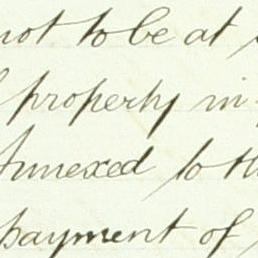 not to be at
property in
Annexed to th
payment of